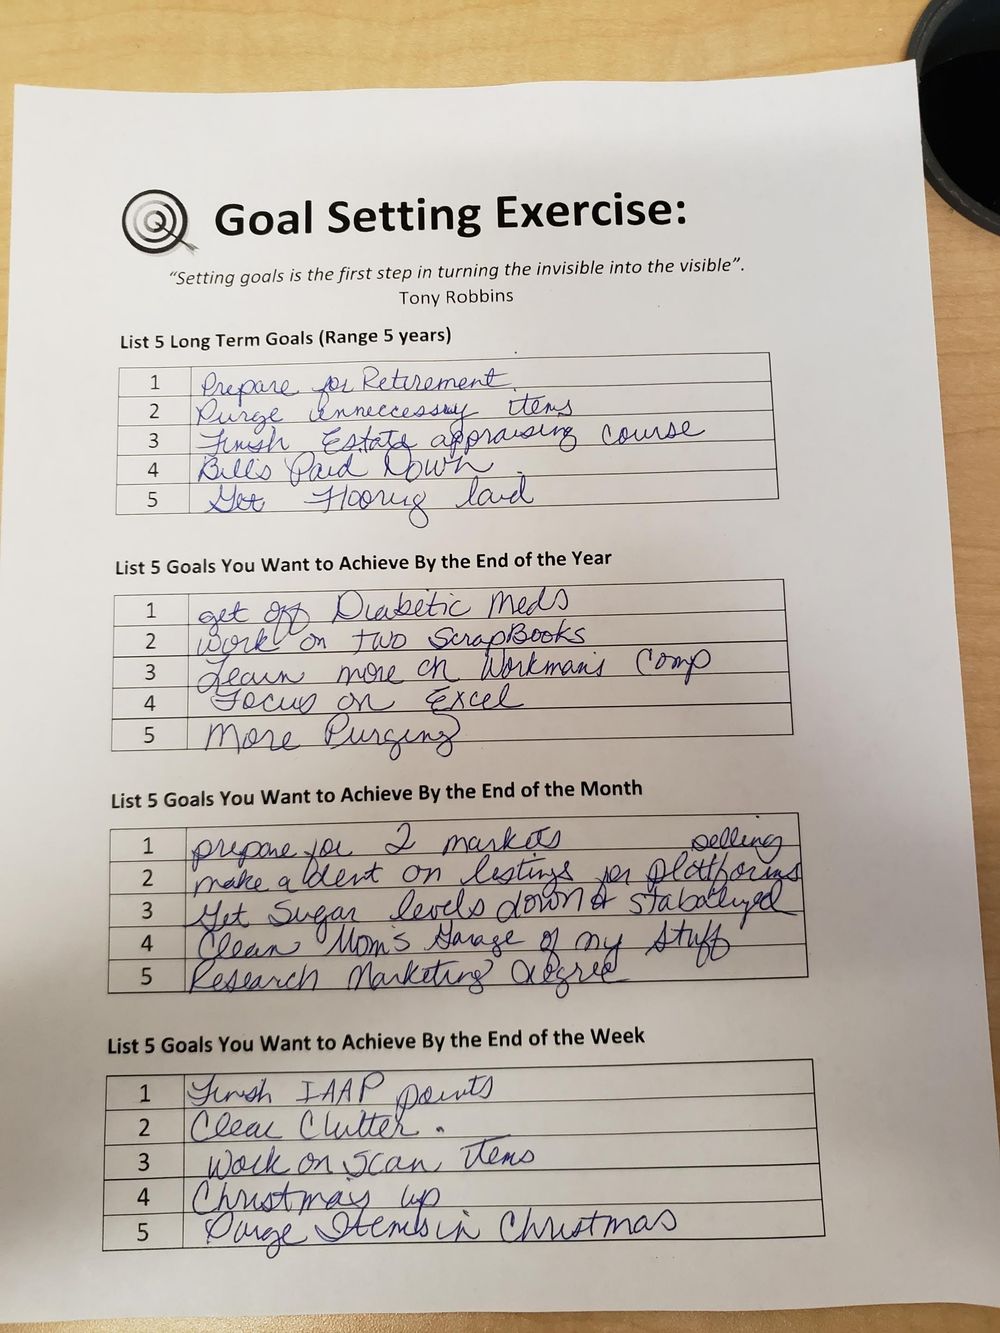 Goal Setting Exercise:
“Setting goals is the first step in turning the invisible into the visible”.
Tony Robbins
List 5 Long Term Goals (Range 5 years)
1 Prepare for Retirement
2 Purge unneccessay items
3 Finish Estate appraising course
4 Bills Paid Down
5 Get Flooring laid
List 5 Goals You Want to Achieve By the End of the Year
1 get off Diabetic Meds
2 work on two ScrapBooks
3 Learn more on Workman's Comp
4 Focus on Excel
5 More Purging
List 5 Goals You Want to Achieve By the End of the Month
1 prepare for 2 markets
selling
2 make a dent on listings for platforms
3 Get Sugar levels down & stabalized
4 Clean Mom's Garage of my Stuff
5 Research Marketing degree
List 5 Goals You Want to Achieve By the End of the Week
1 Finish IAAP points
2 Clear Clutter.
3 Work on Scan items
4 Christmas up
5 Purge Items in Christmas